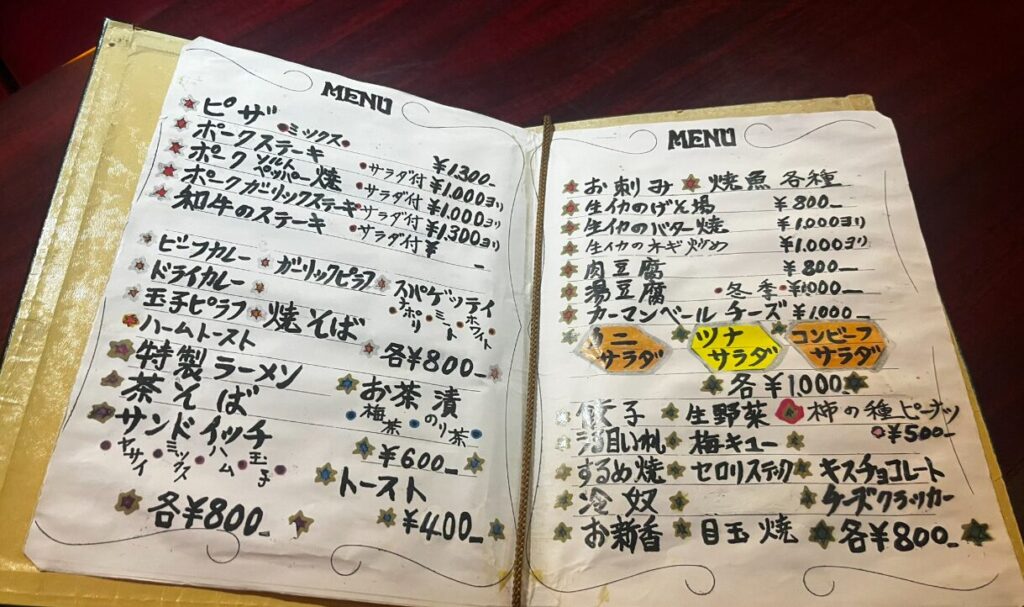 MENU
ピザ ミックス ¥1.300_
ポークステーキ サラダ付 ¥1.000ヨリ
ポークソルトペッパー焼 サラダ付 ¥1.000ヨリ
ポークガーリックステーキ サラダ付 ¥1.300ヨリ
和牛のステーキ サラダ付 ¥ _
ビーフカレー ガーリックピラフ スパゲッティ
ドライカレー ナポリ ミート ホワイト
玉子ピラフ 焼そば
ハムトースト 各¥800_
特製ラーメン お茶漬
茶そば 梅茶 のり茶
サンドイッチ ¥600_
ヤサイ ミックス ハム 玉子 トースト
各¥800_ ¥400_
MENU
お刺み 焼魚各種
生イカのげそ揚 ¥800_
生イカのバター焼 ¥1.000ヨリ
生イカのネギ炒め ¥1.000ヨリ
肉豆腐 ¥800_
湯豆腐 冬季 ¥1000_
カーマンベールチーズ ¥1.000_
サラダ ツナサラダ コンビーフサラダ
各¥1000
餃子 生野菜 柿の種ピーナッツ
梅キュー ¥500_
するめ焼 セロリスティック キスチョコレート
冷奴 チーズクラッカー
お新香 目玉焼 各¥800_